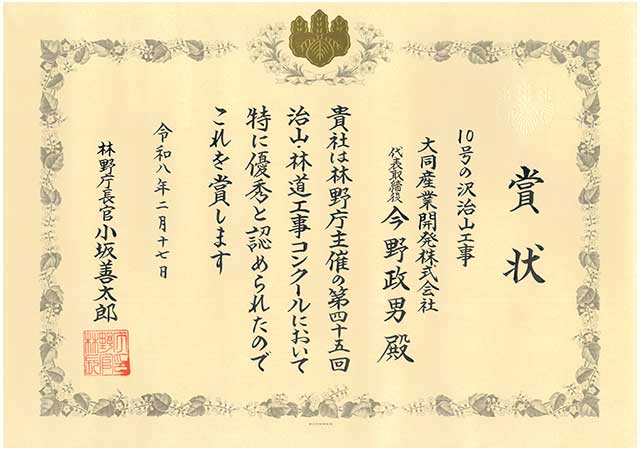 賞状
10号の沢治山工事
大同産業開発株式会社
代表取締役 今野政男 殿
貴社は林野庁主催の第四十五回
治山・林道工事コンクールにおいて
特に優秀と認められたので
これを賞します
令和八年二月十七日
林野庁長官 小坂善太郎